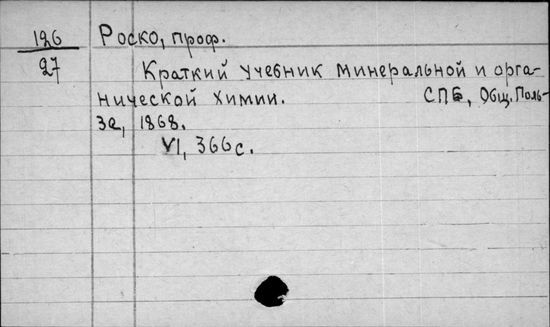 126 Роско, проф.
27 Краткий учебник минеральной и орга-
нической химии. СПБ, Общ. Поль-
за, 1868.
VI, 366 с.